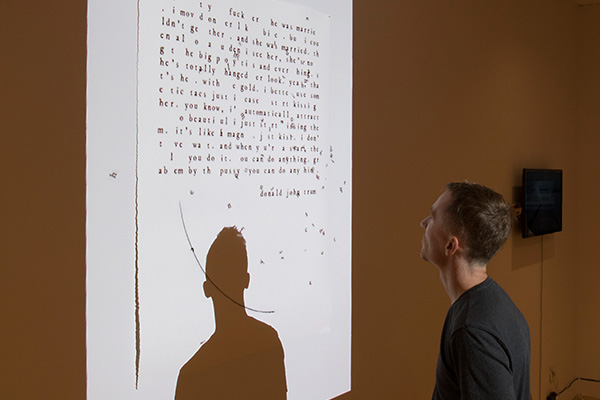 ty fuck er he was marrie
. i mov d on er l k bi c . bu i cou
ldn't ge ther . and she was married. th
en al o a uden i see her, she's no
g t he big po y ti s and ever hing .
he's totally hanged er look. yeah, tha
t's he . with e gold. i bette use som
e tic tacs just i case st rt kissi g
her. you know, i' automatically attract
o beautiful i just st rt issing the
m. it's like a magn . j st kiss. i don'
t ve wa t. and when y u'r a star, the
l you do it. ou can do anything. gr
ab em by th pussy you can do any hin
donald john trum